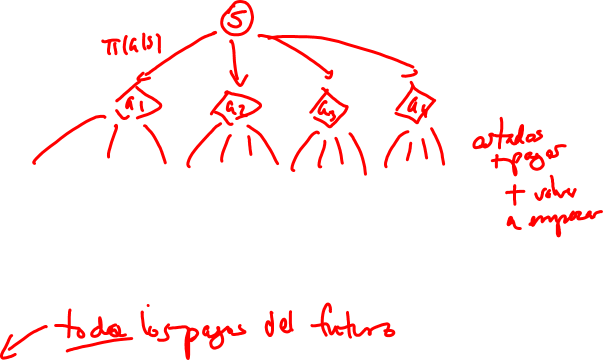 S
π(a|s)
a1 a2 a3 a4
estados
+ pagos
+ volver
a empezar
todos los pagos del futuro